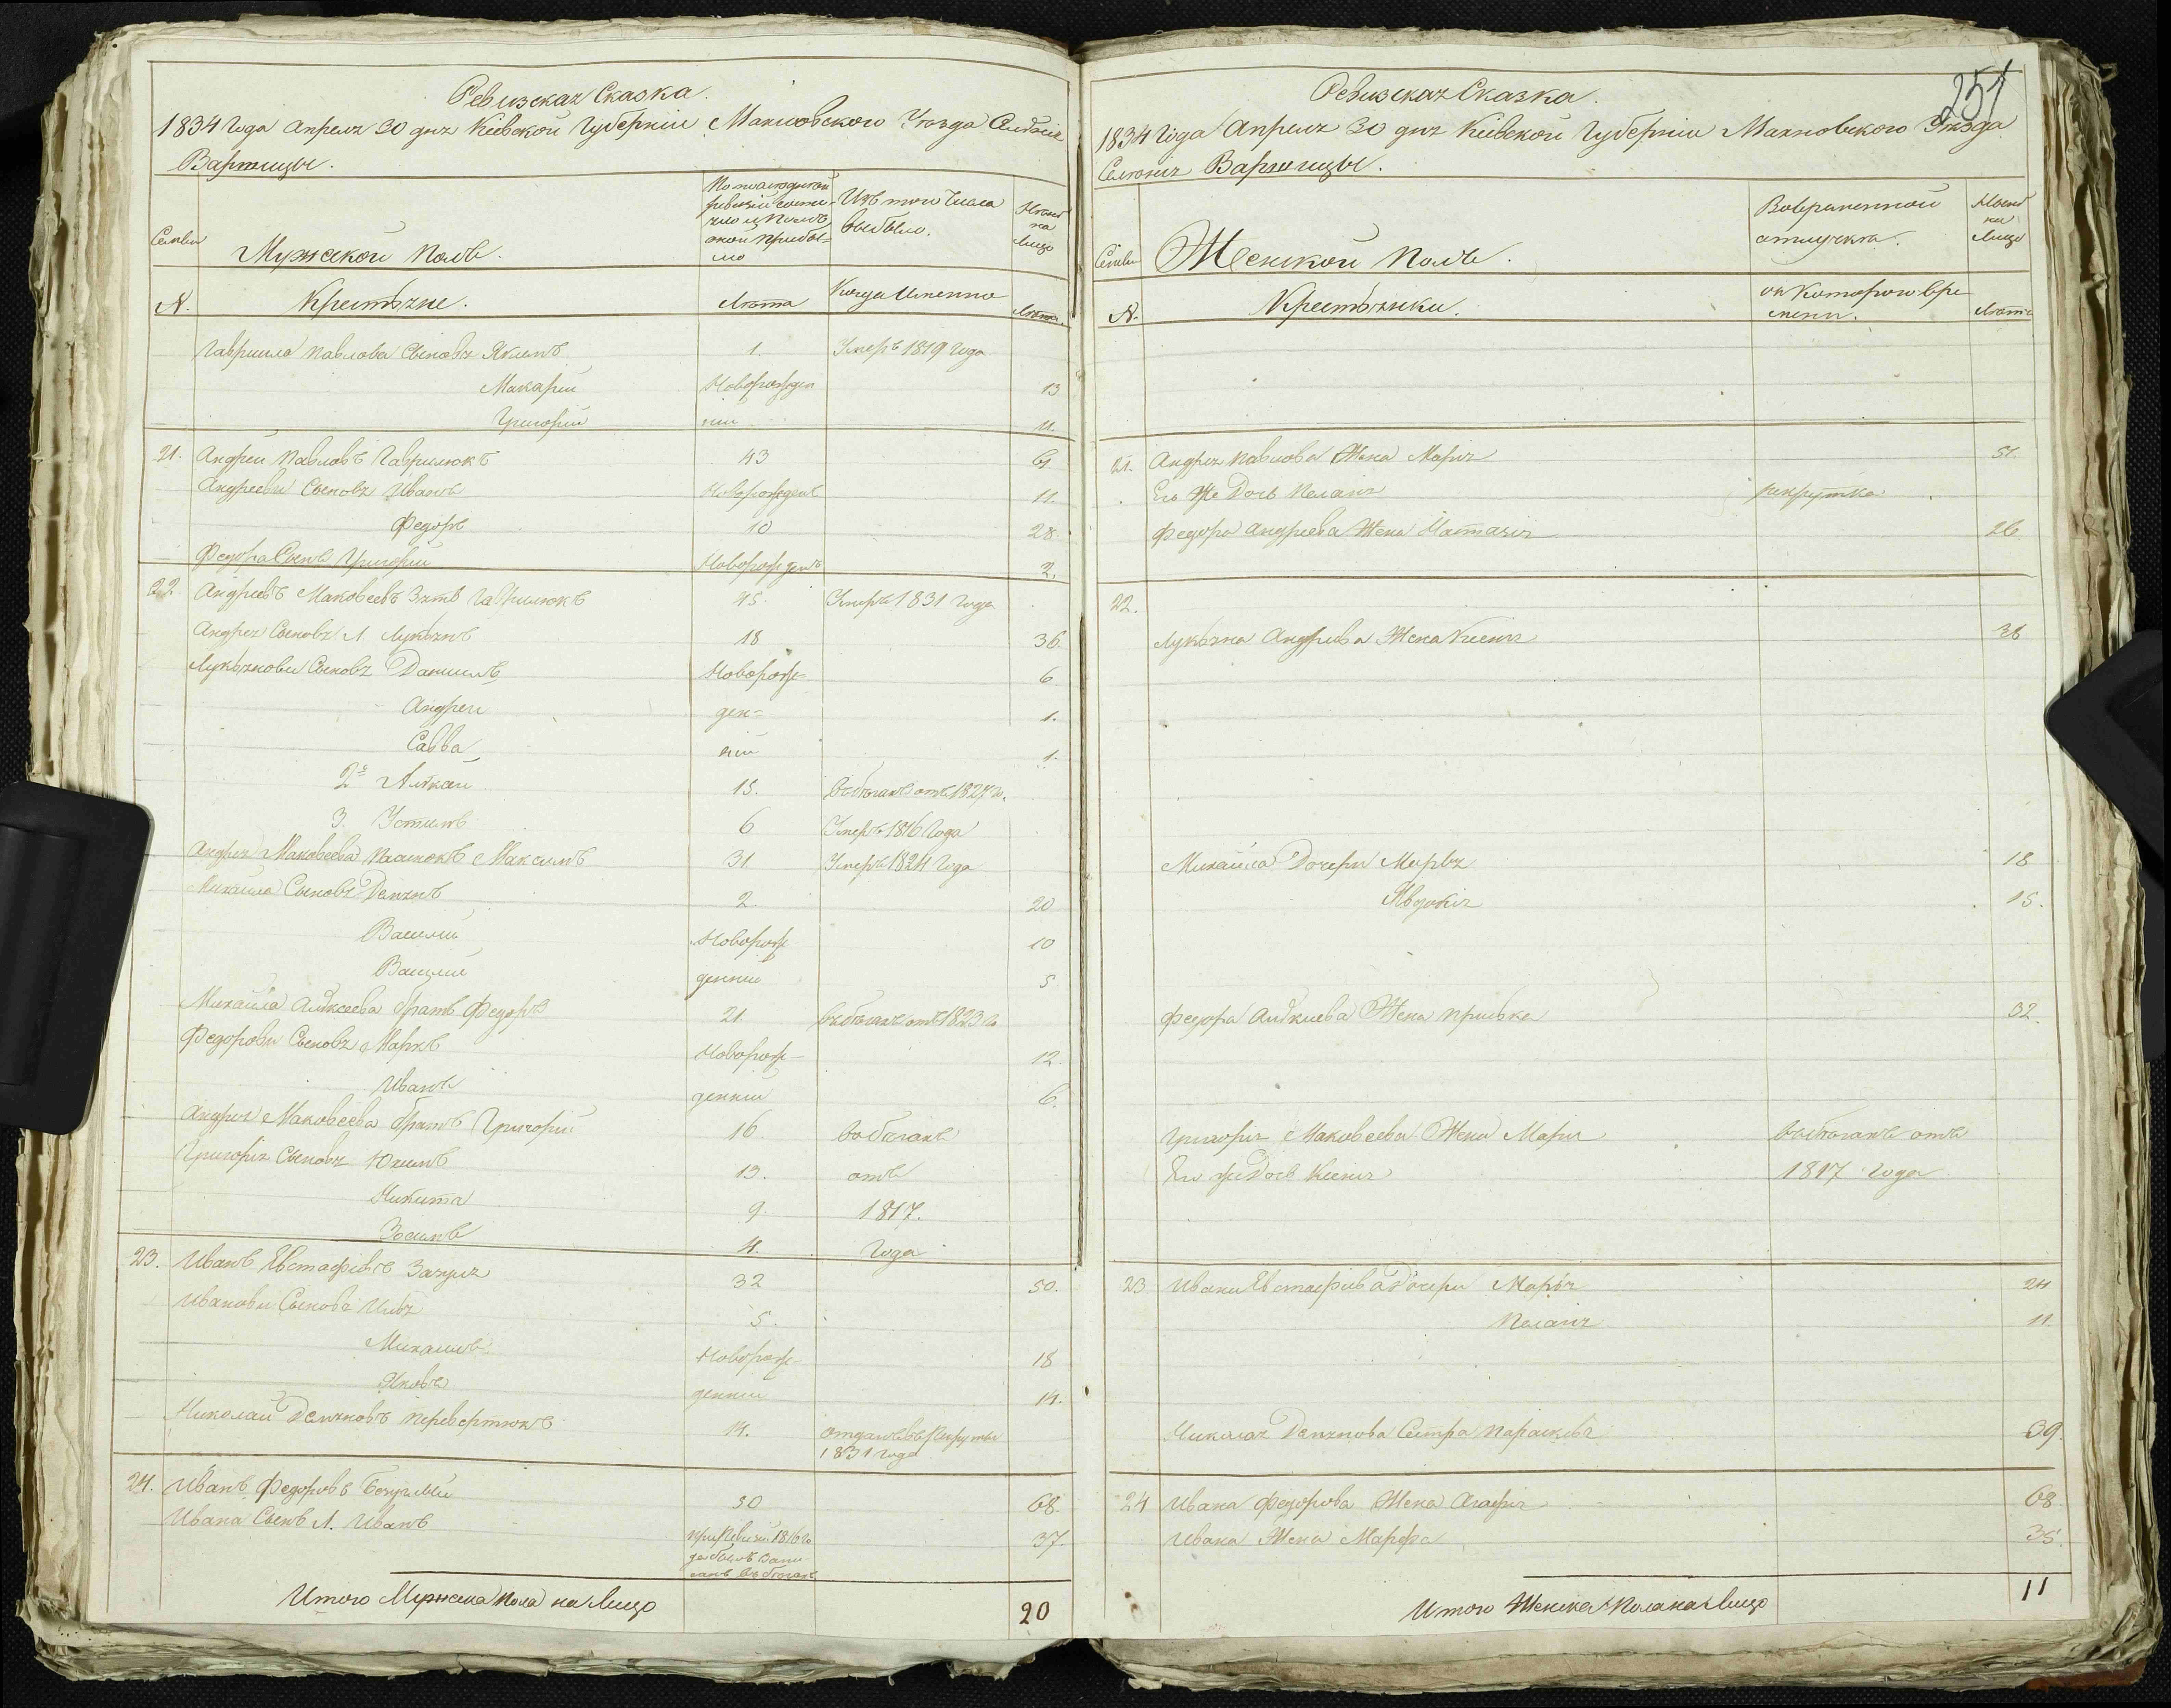 Ревизская Сказка.
1834 Года Апреля 30 дня Киевской Губернии Махновского Уезда Селения
Варшицы.
Семьи
Мужеской Полъ.
По последней ревизии состояло и после оной прибыло
Изъ того числа выбыло.
Ныне на лицо
N.
Крестьяне.
Лета
Когда Именно
Лета.
Гавриила Павлова Сыновья Якимъ 1. Умеръ 1819 Года
Макарий Новорожден 13
Григорий ний 11.
21. Андрей Павловъ Гаврилюкъ 43 61
Андреевы Сыновья Иванъ Новорожденъ 11.
Федоръ 10 28
Федора Сынъ Григорий Новорожденъ 2.
22. Андреевъ Маковеевъ Зять 45. Умеръ 1831 Года
Андрея Сыновья 1. Лукьянъ 18 36.
Лукьяновы Сыновья Даниилъ Новорож- 6
Андрей ден- 1.
Савва ний 1.
2й 15. въ бегахъ отъ 1827 го.
3. Устимъ 6 Умеръ 1816 Года
Андрея Маковеева Максимъ 31 Умеръ 1824 Года
Михаила Сыновья Демянъ 2. 20
Василий Новорож 10
Василий денний 5
Михайла Алексеева братъ Федоръ 21 въ бегахъ отъ 1823 го
Федоровы Сыновья Маркъ Новорож- 12.
Иванъ денний 6.
Андрея Маковеева братъ Григорий 16. въ бегахъ
Григория Сыновья Юхимъ 13. отъ
Никита 9. 1817.
Зосимъ 4. Года
23. Иванъ Евстафиевъ 32 50.
Ивановы Сыновья Илья 5.
Михаилъ Новорож- 18
Яковъ денний 14.
Николай Демяновъ Перевертюкъ 14. отданъ въ Рекруты
1831 года
24. Иванъ Федоровъ 50 68.
Ивана Сынъ 1. Иванъ при Ревизии 1816 го 37.
да былъ Запи
санъ въ бегахъ
Итого Мужеска Пола на Лицо 20
251
Ревизская Сказка.
1834 Года Апреля 30 дня Киевской Губернии Махновского Уезда
Селения Варшицы.
Семьи
Женской Полъ.
Во временной отлучке.
Ныне на Лицо
N.
Крестьянки.
съ Которого времени.
Лета
21. Андрея Павлова Жена Мария 51.
Его Же Дочь Пелагия рекрутка.
Федора Андреева Жена Наталия 26.
22.
Лукьяна Андреева Жена Ксения 36
Михаила Дочери Марья 18
Явдокия 15.
Федора Алексиева Жена Приська 32.
Григория Маковеева Жена Мария въ бегахъ отъ
Его же Дочь Ксения 1817 Года
23 Ивана Евстафиева Дочери Марья 24
Пелагия 11.
Николая Демянова Сестра Параскева 39.
24 Ивана Федорова Жена Агафия 68
Ивана Жена Марфа 35.
Итого Женска Пола на Лицо 11